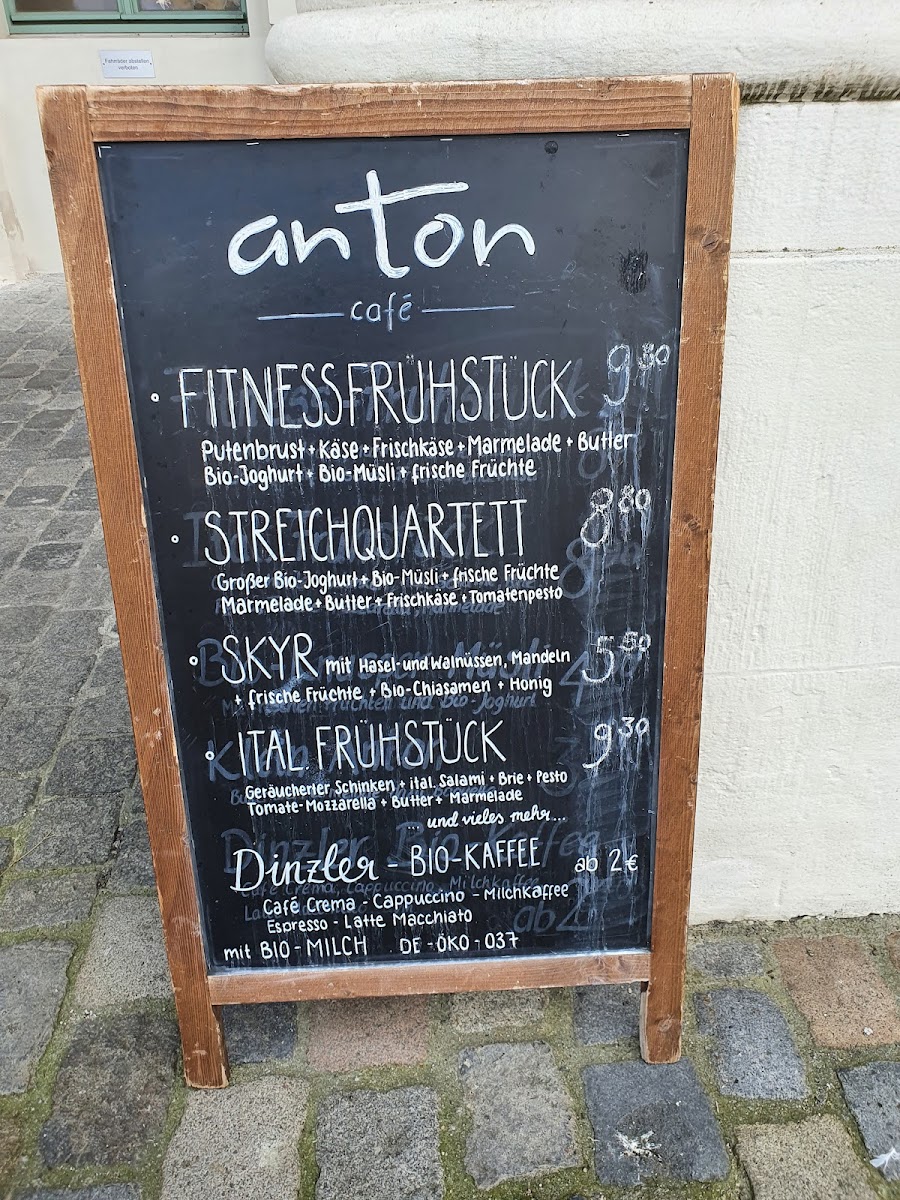 Fahrräder abstellen
verboten
anton
café
FITNESSFRÜHSTÜCK 9 80
Putenbrust + Käse + Frischkäse + Marmelade + Butter
Bio-Joghurt + Bio-Müsli + frische Früchte
STREICHQUARTETT 8 80
Großer Bio-Joghurt + Bio-Müsli + frische Früchte
Marmelade + Butter + Frischkäse + Tomatenpesto
SKYR mit Hasel- und Walnüssen, Mandeln 5 50
+ frische Früchte + Bio-Chiasamen + Honig
ITAL. FRÜHSTÜCK 9 30
Geräucherter Schinken + ital. Salami + Brie + Pesto
Tomate-Mozzarella + Butter + Marmelade
... und vieles mehr...
Dinzler - BIO-KAFFEE ab 2€
Café Crema - Cappuccino - Milchkaffee
Espresso - Latte Macchiato
mit BIO-MILCH DE-ÖKO-037